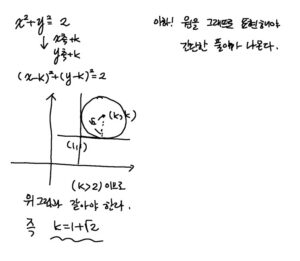 x²+y²=2
↓ x축+k
y축+k
(x-k)²+(y-k)²=2
√2
(k,k)
(1,1)
(k>2) 이므로
위 그림과 같아야 한다.
즉 k=1+√2
아하! 원을 그래프로 표현해야
간단한 풀이가 나온다.